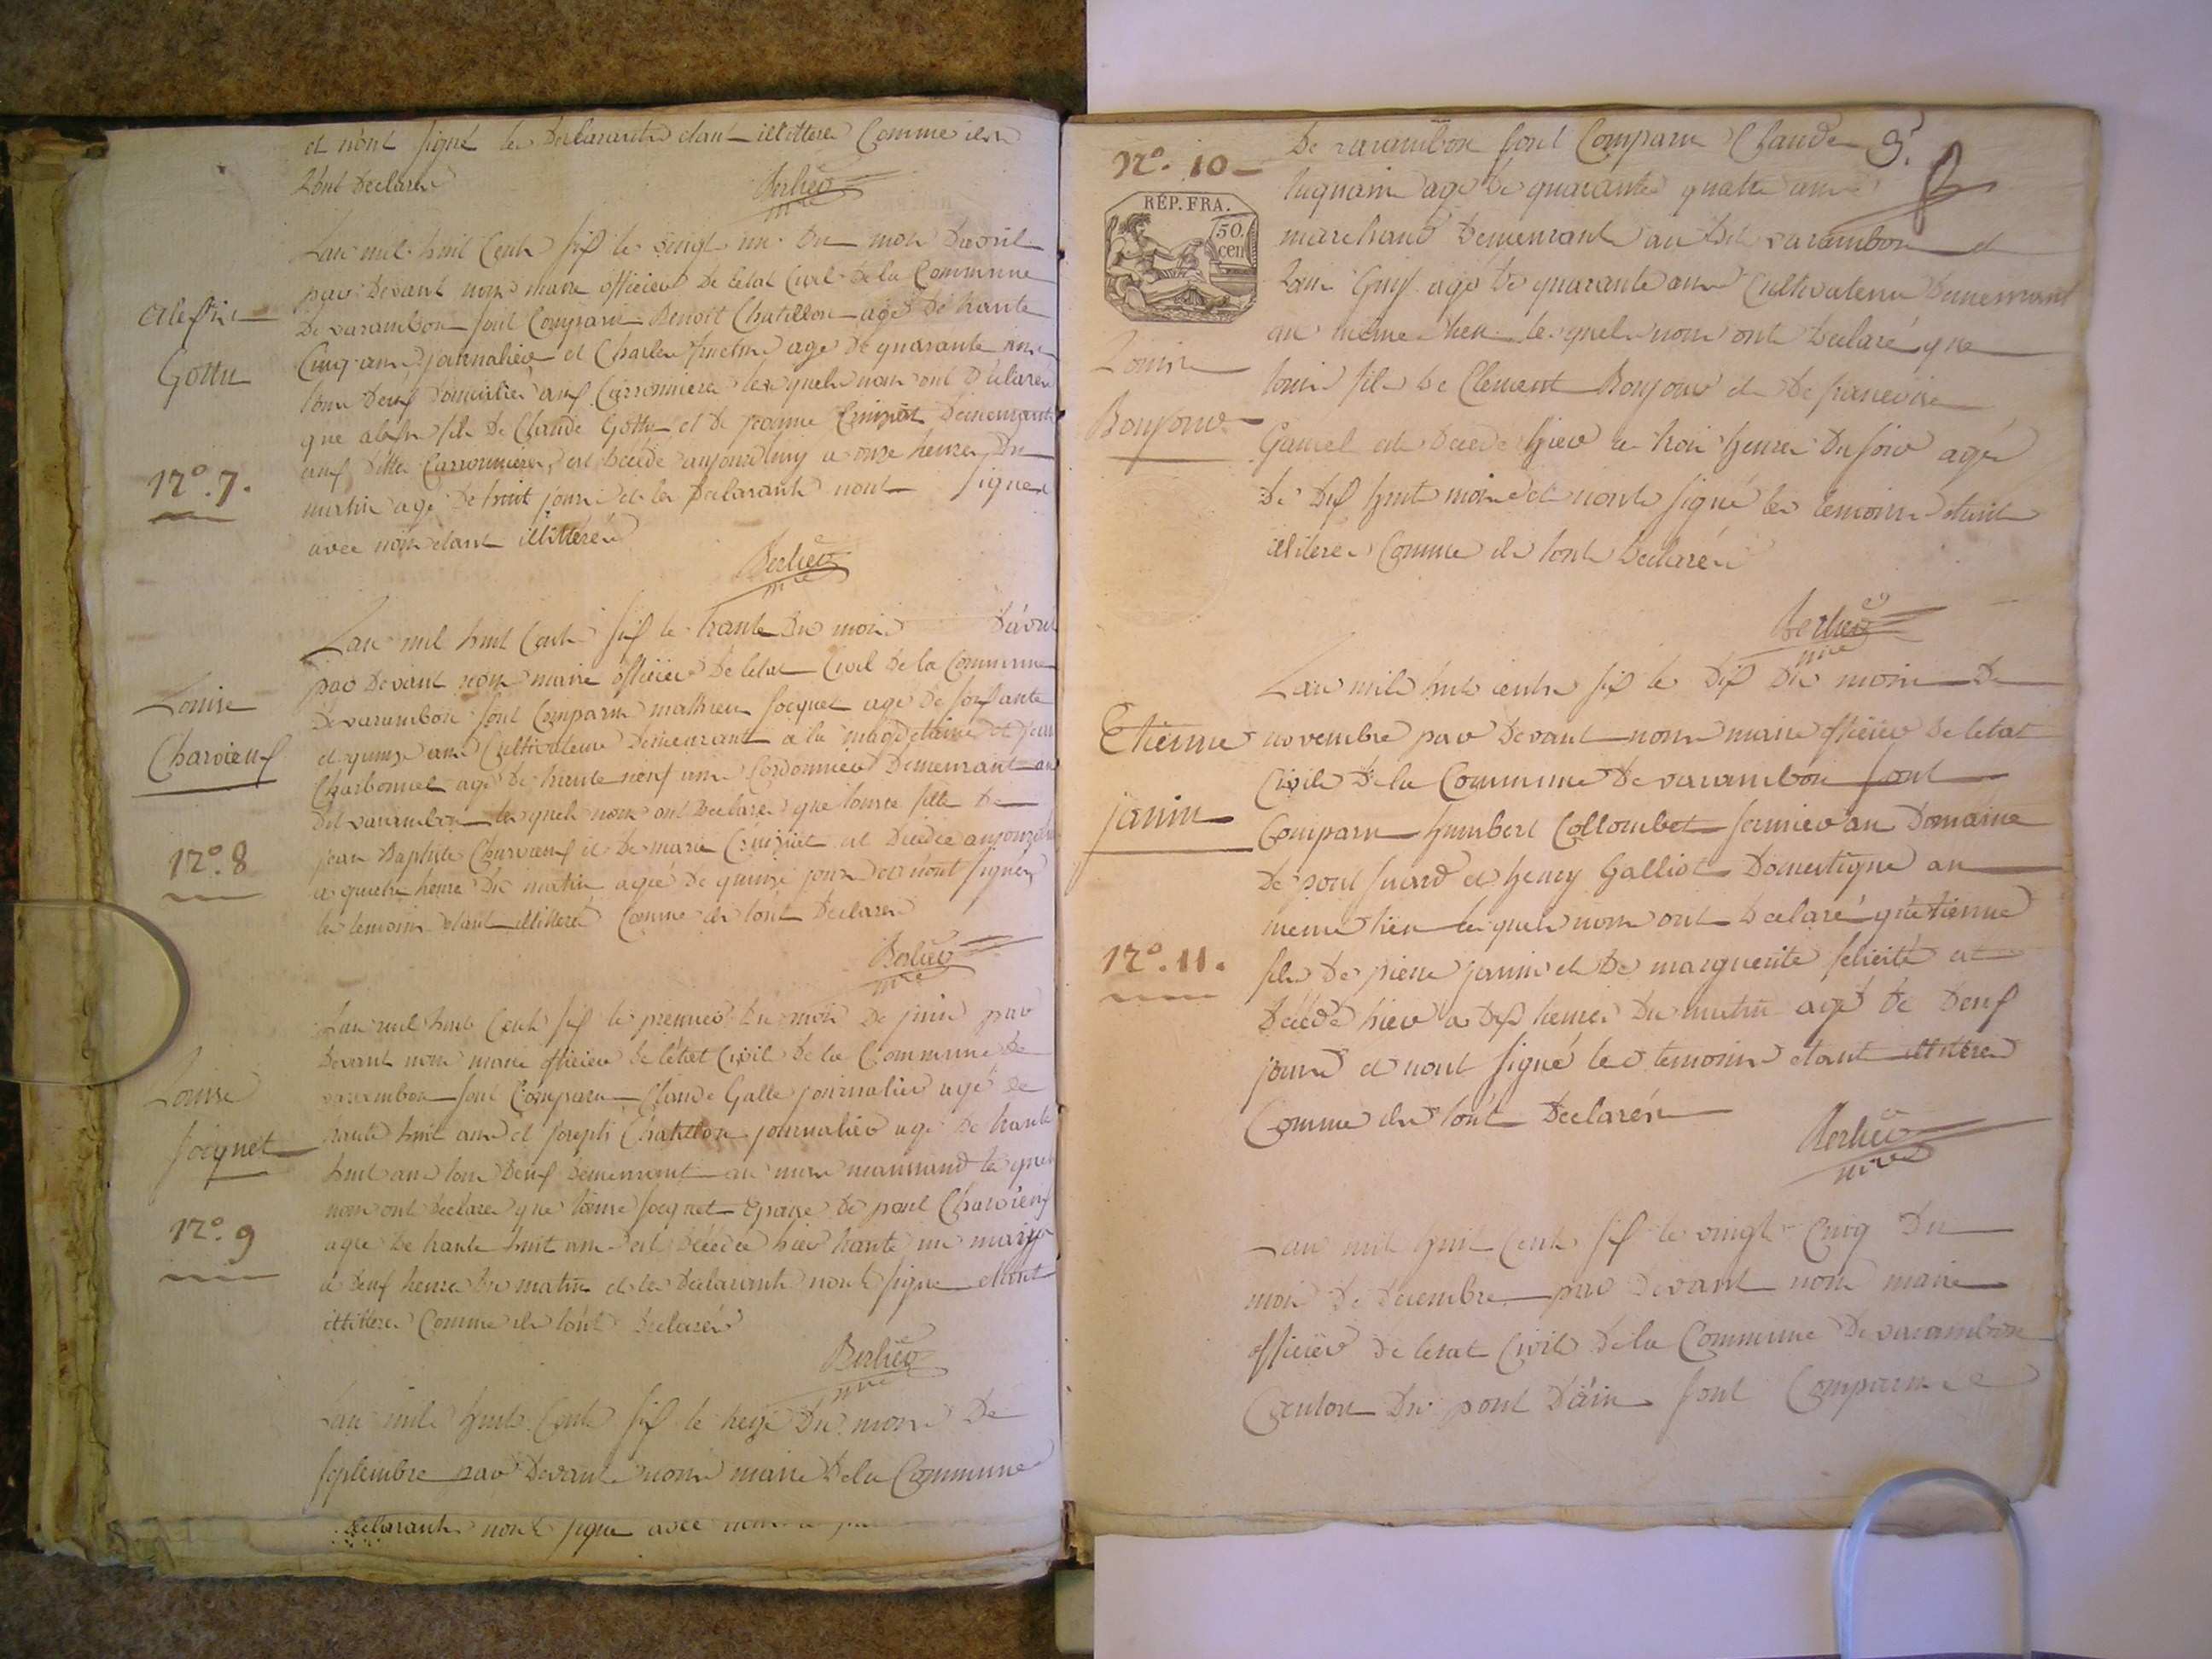 et n'ont signé les declarants etant illitteré Comme ils
l'ont Declarés
Berlier
mre
Lan mil huit Cents six le vingt un du mois Davril
par Devant nous maire officier De letat Civil de la Commune
De varambon sont Comparu Benoit Chatillon agé De trante
Cinq ans journalier et Charles agé De quarante ans
tous Deux Domiciliés aux Carronnieres lesquels nous ont Déclarés
que alexis fils De Claude Gottu et De jeanne Demeurants
aux dittes Carronnieres, est decédé aujourdhuy a onze heures Du
matin agé De huit jours et les Declarants nont signés
avec nous etant illittérés
Alexis
Gottu
N°. 7.
Berlier
mre
Lan mil huit Cents six le trante Du mois D'avril
par Devant nous maire officier De letat Civil de la Commune
De varambon sont Comparu mathieu Jocquet agé De soissante
et quinze ans Cultivateur Demeurant a la magdelaine et jean
Charbonnet agé De trante neuf ans Cordonnier Demeurant au
Dit varambon les quels nous ont Declarés que louise fille De
jean Baptiste Charvieux et De marie Cruiziat est Decedée
a quatre heure Du matin agée De quinze jours et n'ont signés
les temoins etant illitteré Comme ils l'ont Declarés
Louise
Charvieux
N°. 8
Berlier
mre
Lan mil huit Cents six le premier du mois De juin par
Devant nous maire officier De létat Civil De la Commune De
varambon sont Comparu Claude Galle journalier agé De
trante huit ans et joseph Chatillon journalier agé De trante
huit ans tous Deux Demeurant au les quels
nous ont Declarés que louise Jocquet Epouse De paul Charvieux
agée De trante huit ans est Décédée hier trante un may
a Deux heures Du matin et les Declarants nont signé etant
illitteres Comme ils lont Declarés
Louise
Jocquet
N°. 9
Berlier
mre
Lan mil huit Cents six le treize Du mois De
septembre par Devant nous maire De la Commune
Declarants nont signe avec nous
N°. 10
RÉP. FRA.
50.
cen
De varambon sont Comparu Claude
agé De quarante quatre ans
marchand Demeurant au Dit varambon et
Louis Guy agé De quarante ans Cultivateur Demeurant
au même lieu les quels nous ont Declaré que
louis fils De Clement Bonjour et De francoise
est Decedé hier a trois heures Du soir agé
De Dix huit mois et nont signé les temoins etant
illiterés Comme ils lont Declarés
Louis
Bonjour
Berlier
mre
Lan mil huit cents six le Dix Du mois De
novembre par Devant nous maire officier De letat
Civil De la Commune De varambon sont
Comparu humbert Collombet fermier au Domaine
De pont suard et henry Galliot Domestique au
meme lieu les quels nous ont Declaré quetienne
fils De pierre janin et De marguerite felicité est
Décédé hier a Dix heures Du matin agé De Deux
jours et nont signé les temoins etant illitterés
Comme ils lont Declarés
Etienne
janin
N°. 11.
Berlier
mre
Lan mil huit Cents six le vingt Cinq Du
mois De Decembre par Devant nous maire
officier De letat Civil De la Commune De varambon
Canton Du pont D'ain sont Comparus